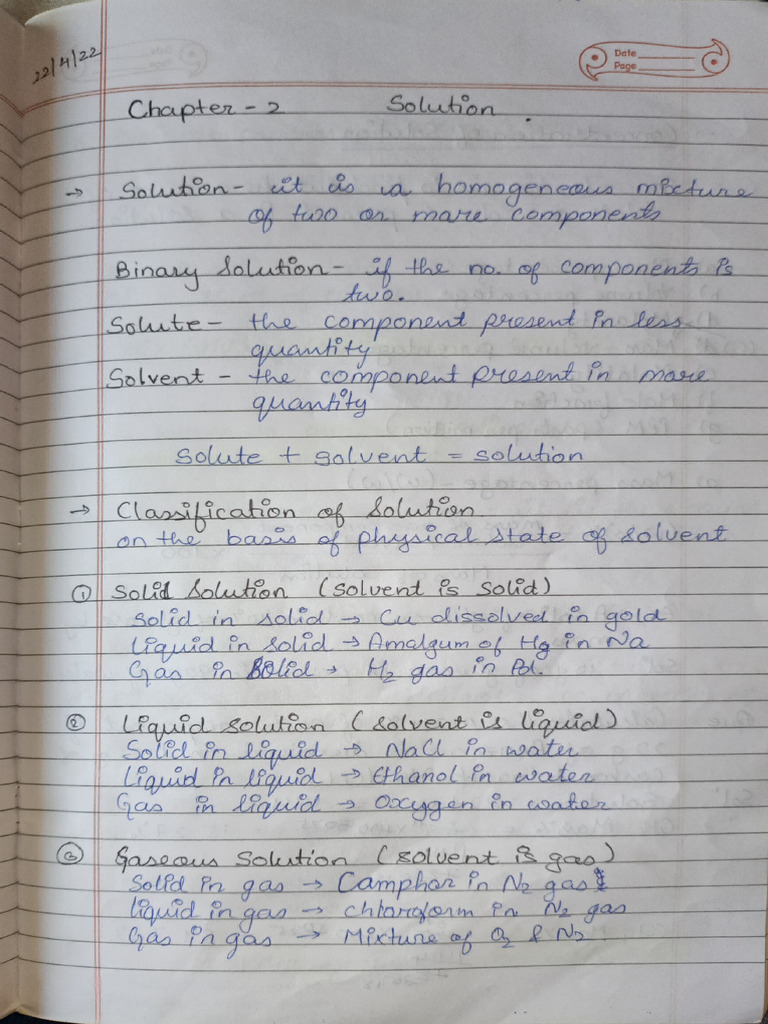 22/4/22
Date
Page
Chapter - 2 Solution .
→ Solution - it is a homogeneous mixture
of two or more components
Binary Solution - if the no. of components is
two.
Solute - the component present in less
quantity
Solvent - the component present in more
quantity
solute + solvent = solution
→ Classification of Solution
on the basis of physical state of solvent
① Solid Solution (solvent is solid)
Solid in solid → Cu dissolved in gold
liquid in solid → Amalgum of Hg in Na
Gas in solid → H2 gas in Pd.
② Liquid solution (solvent is liquid)
Solid in liquid → NaCl in water
liquid in liquid → Ethanol in water
Gas in liquid → Oxygen in water
③ Gaseous Solution (solvent is gas)
Solid in gas → Camphor in N2 gas
liquid in gas → chloroform in N2 gas
Gas in gas → Mixture of O2 & N2